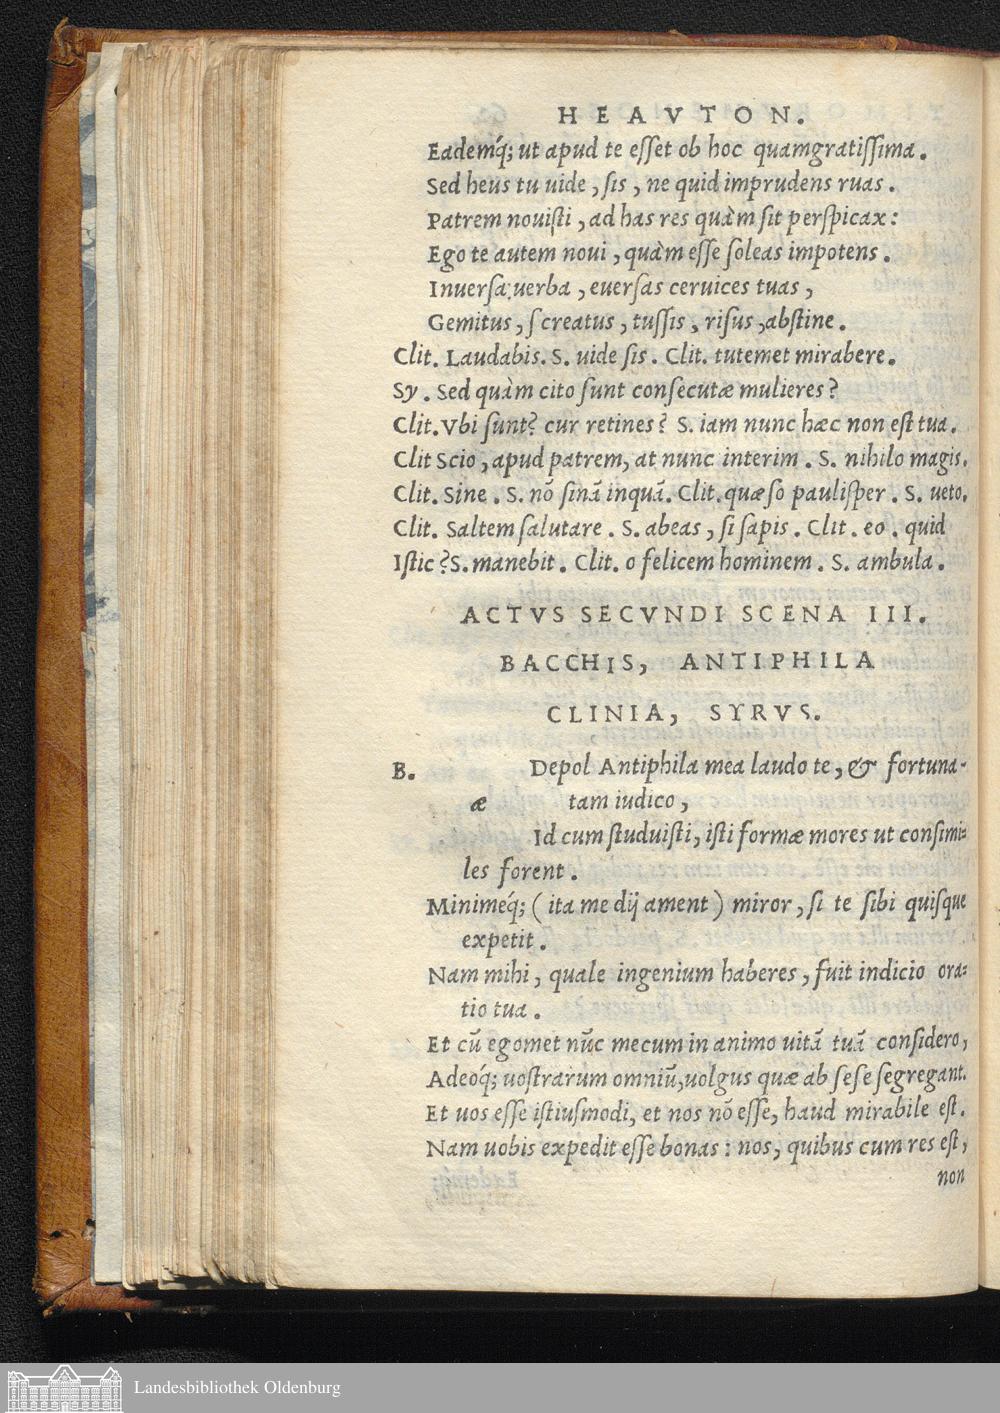 HEAVTON.
Eademq́; ut apud te eſſet ob hoc quamgratiſſima.
Sed heus tu uide, ſis, ne quid imprudens ruas.
Patrem nouiſti, ad has res quàm ſit perſpicax:
Ego te autem noui, quàm eſſe ſoleas impotens.
Inuerſa uerba, euerſas ceruices tuas,
Gemitus, ſcreatus, tuſſis, riſus, abſtine.
Clit. Laudabis. S. uide ſis. Clit. tutemet mirabere.
Sy. Sed quàm cito ſunt conſecutæ mulieres?
Clit. Vbi ſunt? cur retines? S. iam nunc hæc non eſt tua.
Clit Scio, apud patrem, at nunc interim. S. nihilo magis.
Clit. Sine. S. nõ ſinã inquã. Clit. quæſo pauliſper. S. ueto.
Clit. Saltem ſalutare. S. abeas, ſi ſapis. Clit. eo. quid
Iſtic? S. manebit. Clit. o felicem hominem. S. ambula.
ACTVS SECVNDI SCENA III.
BACCHIS, ANTIPHILA
CLINIA, SYRVS.
B. Depol Antiphila mea laudo te, & fortuna-
æ tam iudico,
Id cum ſtuduiſti, iſti formæ mores ut conſimi=
les forent.
Minimeq́; (ita me dij ament) miror, ſi te ſibi quiſque
expetit.
Nam mihi, quale ingenium haberes, fuit indicio ora=
tio tua.
Et cũ egomet nũc mecum in animo uitã tuã conſidero,
Adeoq́; uoſtrarum omniũ, uolgus quæ ab ſeſe ſegregant.
Et uos eſſe iſtiuſmodi, et nos nõ eſſe, haud mirabile eſt.
Nam uobis expedit eſſe bonas: nos, quibus cum res eſt,
non
Landesbibliothek Oldenburg